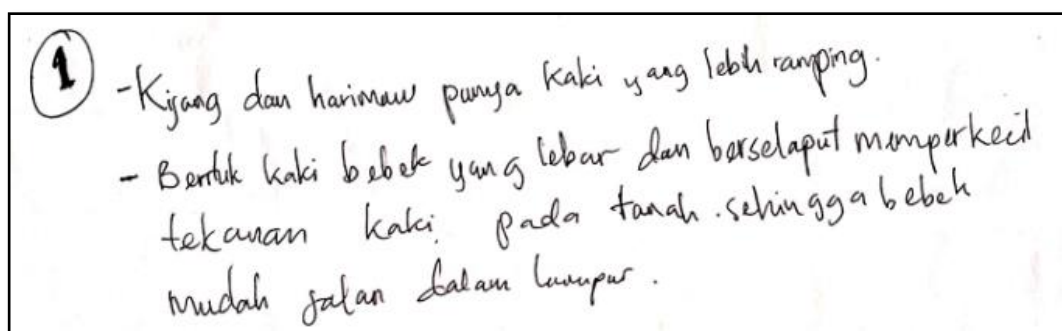 1 - Kijang dan harimau punya kaki yang lebih ramping.
- Bentuk kaki bebek yang lebar dan berselaput memperkecil
tekanan kaki pada tanah. sehingga bebek
mudah jalan dalam lumpur.